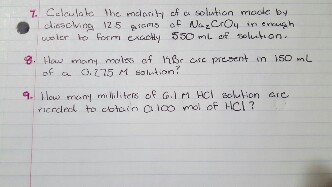 7. Calculate the molarity of a solution made by
dissolving 12.5 grams of Na₂CrO₄ in enough
water to form exactly 550 mL of solution.
8. How many moles of HBr are present in 150 mL
of a 0.275 M solution?
9. How many milliliters of 6.1 M HCl solution are
needed to obtain 0.100 mol of HCl?